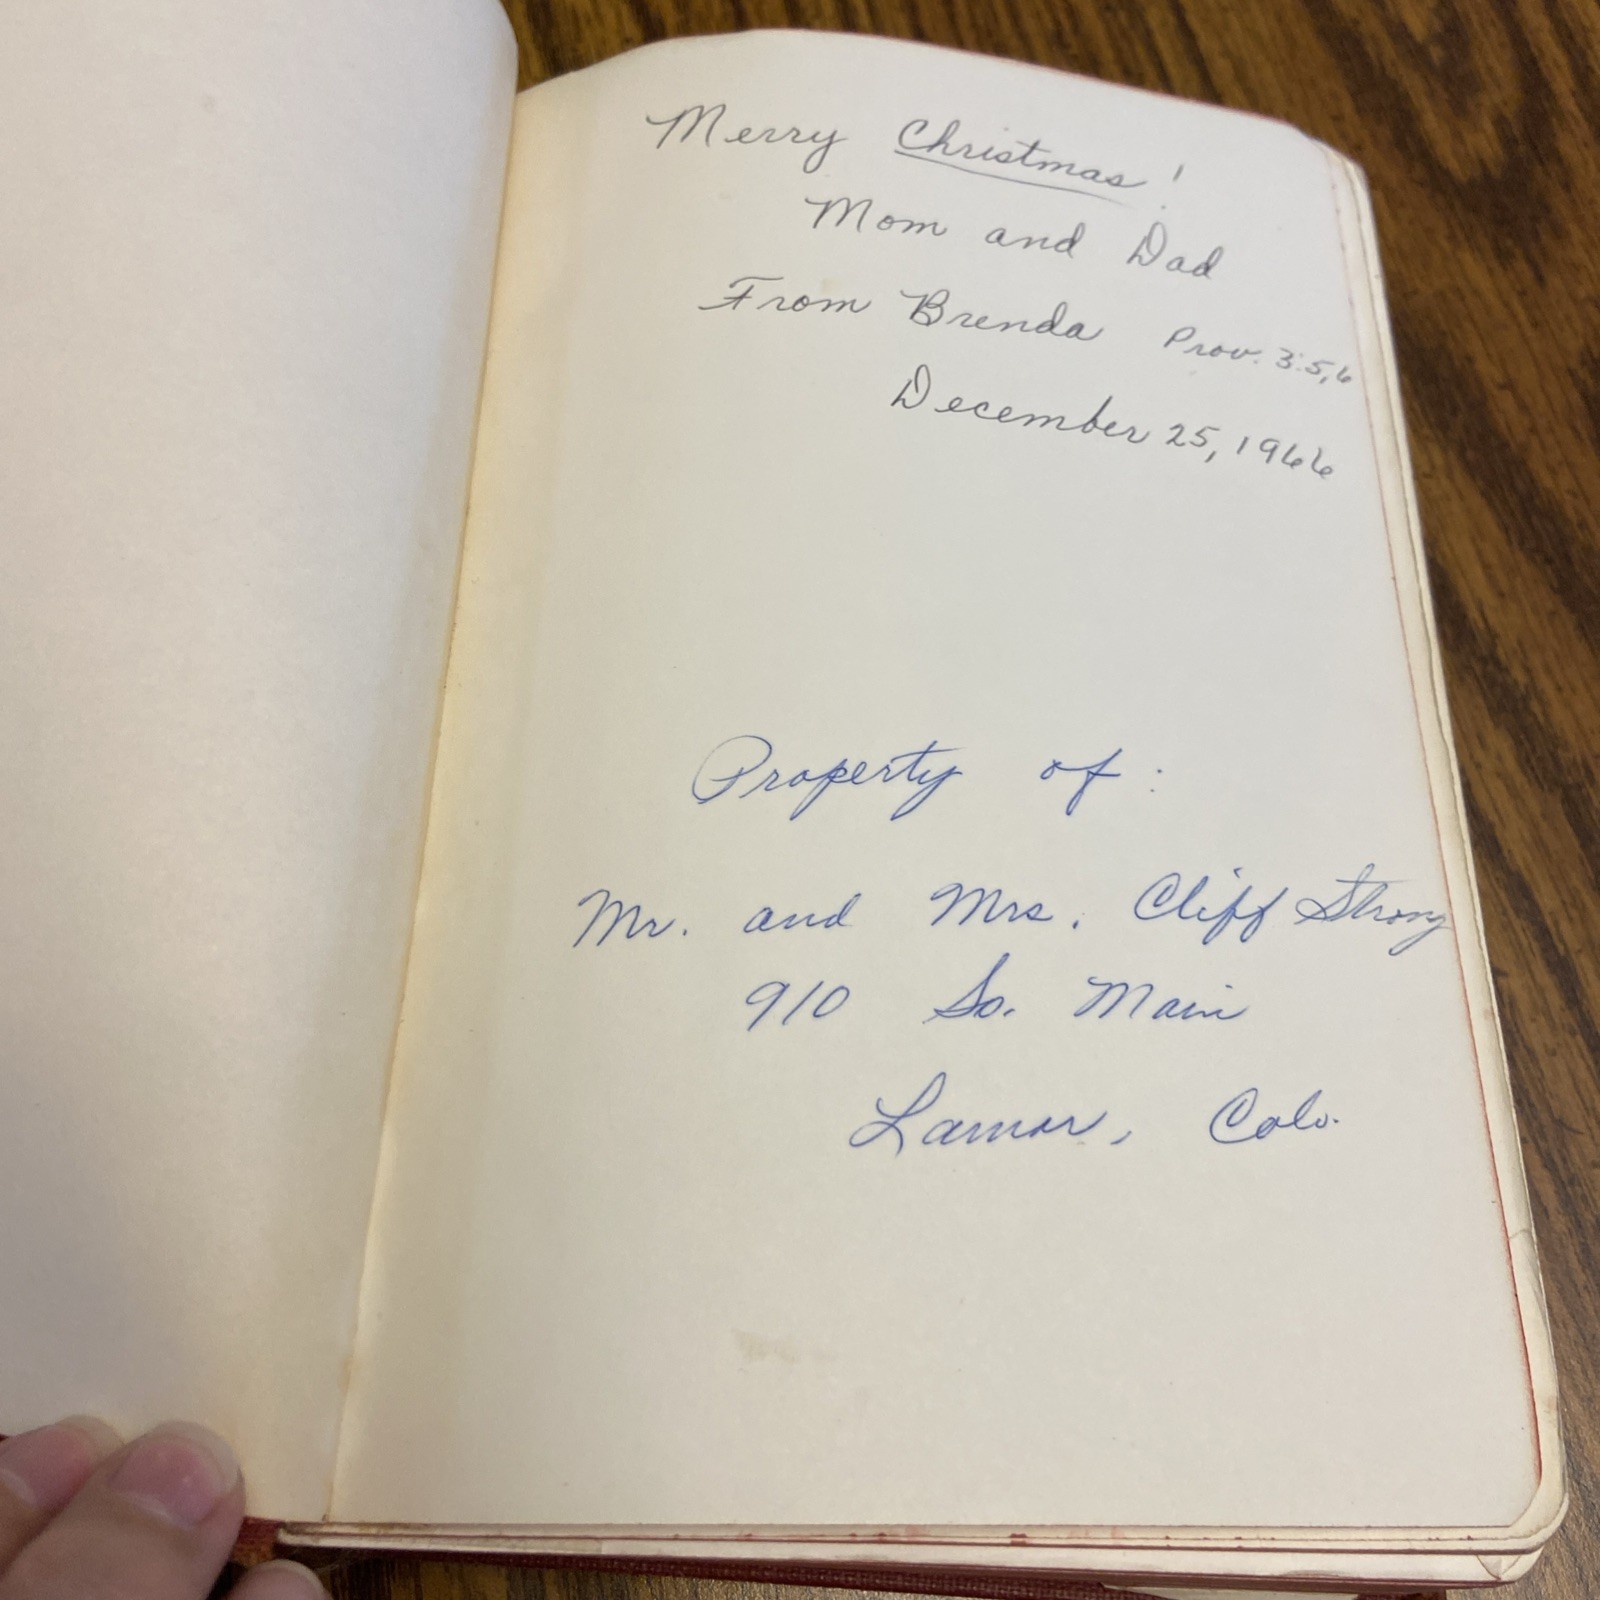 Merry Christmas!
Mom and Dad
From Brenda Prov. 3:5,6
December 25, 1966
Property of:
Mr. and Mrs. Cliff Strong
910 So. Main
Lamar, Colo.